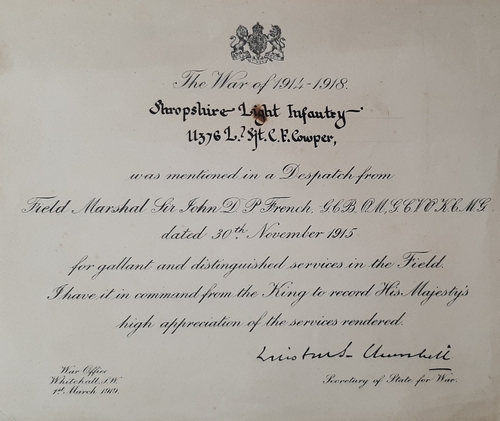 The War of 1914-1918.
Shropshire Light Infantry
11376 L. Sjt. C. F. Cowper,
was mentioned in a Despatch from
Field Marshal Sir John D. P. French, G.C.B., O.M., G.C.V.O., K.C.M.G.
dated 30th November 1915
for gallant and distinguished services in the Field.
I have it in command from the King to record His Majesty's
high appreciation of the services rendered.
Winston S. Churchill
War Office
Whitehall, S.W.
1st March 1919.
Secretary of State for War.